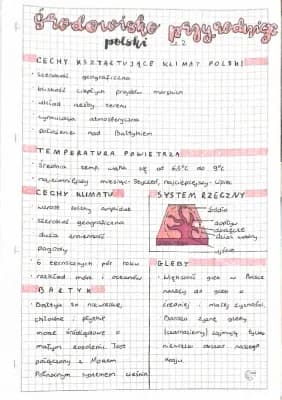 środowisko przyrodnicze
polski cz. 2
CECHY KSZTAŁTUJĄCE KLIMAT POLSKI
· szerokość geograficzna
· bliskość ciepłych prądów morskich
· układ rzeźby terenu
· cyrkulacja atmosferyczna
· położenie nad Bałtykiem
TEMPERATURA POWIETRZA
· średnia temp. waha się od 6,5°C do 9°C
· najzimniejszy miesiąc: styczeń, najcieplejszy: lipiec
CECHY KLIMATU
· wzrost amplitud
· szerokość geograficzna
· duża zmienność
pogody
· 6 termicznych pór roku
· rozkład mórz i oceanów
BAŁTYK
· Bałtyk to niewielkie,
chłodne i płytkie
morze śródlądowe o
małym zasoleniu. Jest
połączony z Morzem
Północnym systemem cieśnin
SYSTEM RZECZNY
źródło
dopływ
dorzecze
dział wodny
ujście
GLEBY
· Większość gleb w Polsce
należy do gleb o
średniej i małej żyzności.
Bardzo żyzne gleby
(czarnoziemy) zajmują tylko
niewielki obszar naszego
kraju.